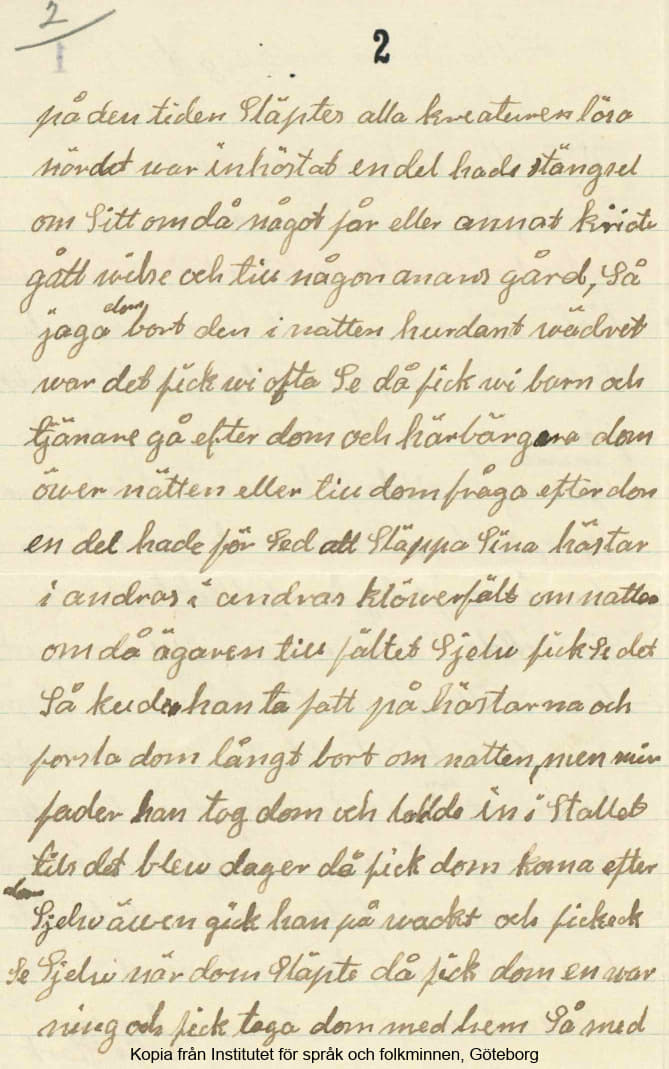 2
1
2
på den tiden Släptes alla kreaturen lösa
nördet war inhöstat en del hade stängsel
om Sitt om då något får eller annat kriatu
gått wilse och till någon anans gård, Så
jaga dom bort den i natten hurdant wädret
war det fick wi ofta Se då fick wi barn och
tjänare gå efter dom och härbärgera dom
öwer nätten eller till dom fråga efter dom
en del hade för Sed att Släppa Sina hästar
i andras i andras klöwerfält om natten
om då ägaren till fältet Sjelw fick Se det
Så kunde han ta fatt på hästarna och
forsla dom långt bort om natten, men min
fader han tog dom och ledde in i Stallet
tils det blew dager då fick dom koma efter
dom
Sjelw äwen gick han på wackt och fick
Se Sjelw när dom Släpte då fick dom en war
ning och fick taga dom med hem Så med
Kopia från Institutet för språk och folkminnen, Göteborg